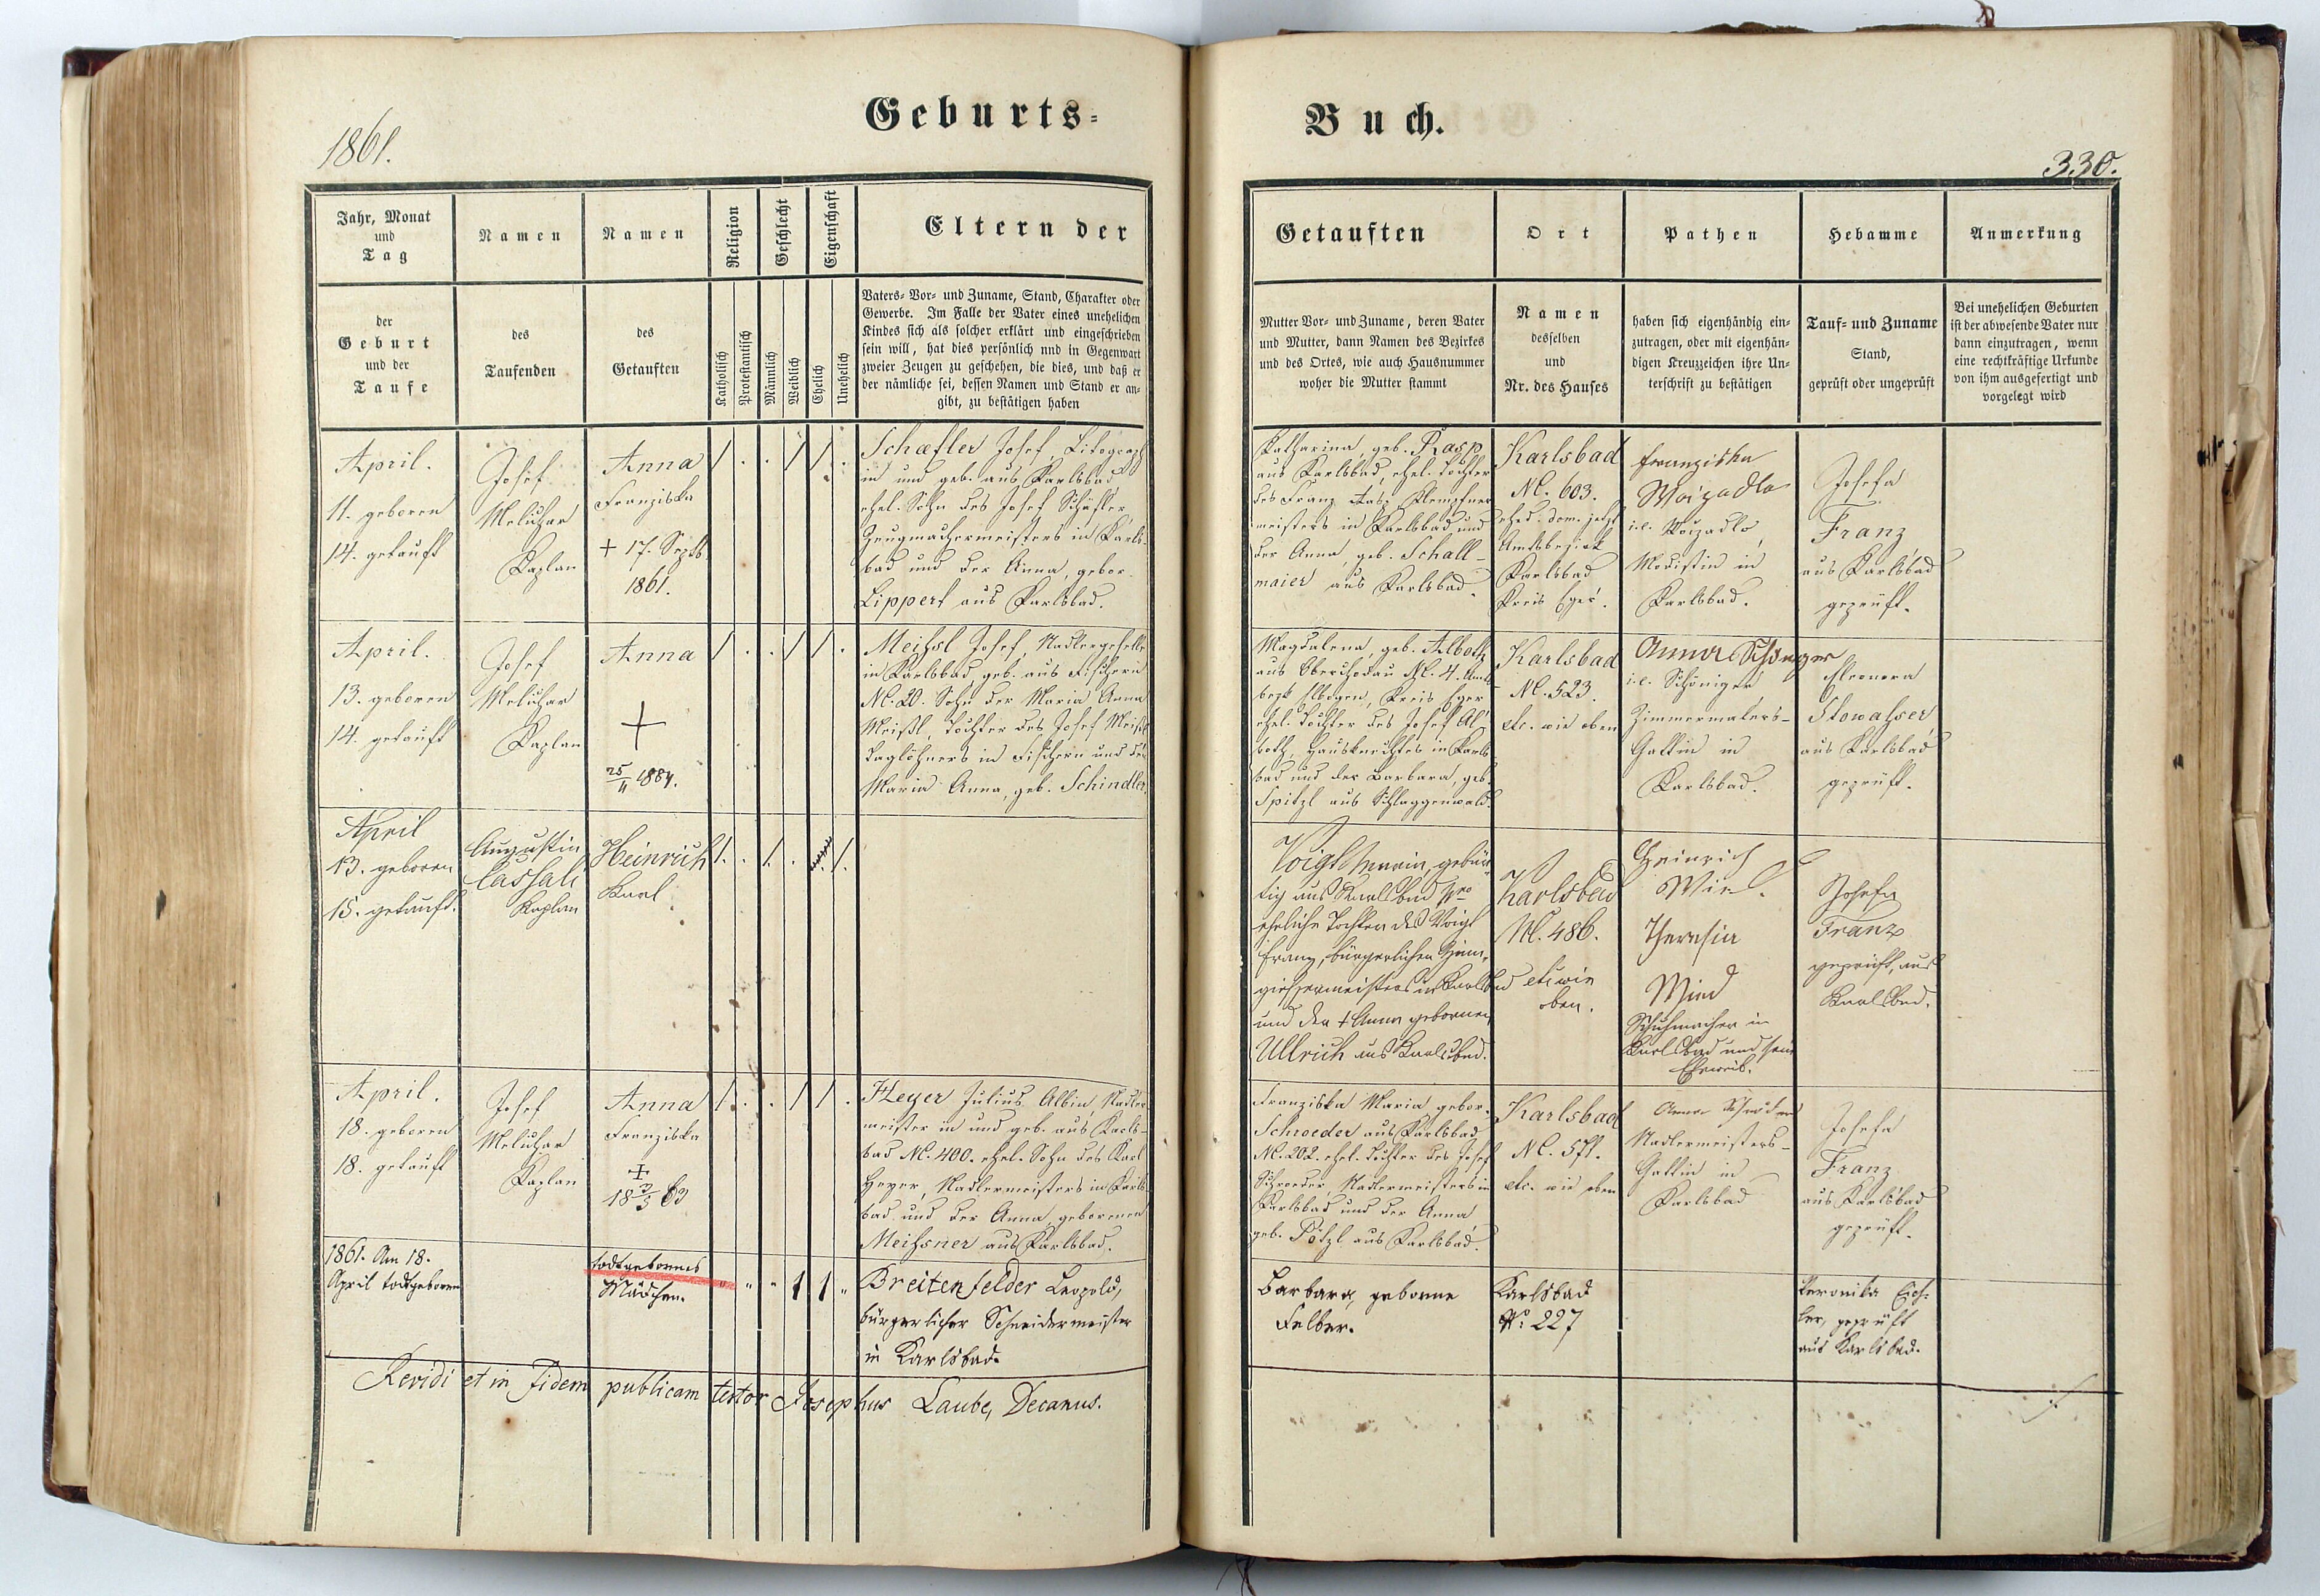 1861.
Geburts=
Buch.
330.
Jahr, Monat
und
Tag
der
Geburt
und der
Taufe
Namen
des
Taufenden
Namen
des
Getauften
Religion
Katholisch
Protestantisch
Geschlecht
Männlich
Weiblich
Eigenschaft
Ehelich
Unehelich
Eltern der
Vaters= Vor= und Zuname, Stand, Charakter oder
Gewerbe. Im Falle der Vater eines unehelichen
Kindes sich als solcher erklärt und eingeschrieben
sein will, hat dies persönlich nnd in Gegenwart
zweier Zeugen zu geschehen, die dies, und daß er
der nämliche sei, dessen Namen und Stand er an=
gibt, zu bestätigen haben
Getauften
Mutter Vor= und Zuname, deren Vater
und Mutter, dann Namen des Bezirkes
und des Ortes, wie auch Hausnummer
woher die Mutter stammt
Ort
Namen
desselben
und
Nr. des Hauses
Pathen
haben sich eigenhändig ein=
zutragen, oder mit eigenhän=
digen Kreuzzeichen ihre Un=
terschrift zu bestätigen
Hebamme
Tauf= und Zuname
Stand,
geprüft oder ungeprüft
Anmerkung
Bei unehelichen Geburten
ist der abwesende Vater nur
dann einzutragen, wenn
eine rechtkräftige Urkunde
von ihm ausgefertigt und
vorgelegt wird
April.
11. geboren
14. getauft
Josef
Meluzar
Kaplan
Anna
Franziska
+ 17. Septb.
1861.
Schæfler Josef, Litograph
in und geb. aus Karlsbad
ehel. Sohn des Josef Schäfler
Zeugmachermeisters in Karls-
bad und der Anna, gebor.
Lippert aus Karlsbad.
Katharina, geb. Rasp
aus Karlsbad, ehel. Tochter
des Franz Rasp,
meisters in Karlsbad und
der Anna, geb. Schall-
maier aus Karlsbad.
Karlsbad
N. 603.
Amtsbezirk
Karlsbad
Kreis Eger.
Franziska
i.e.
Modistin in
Karlsbad.
Josefa
Franz
aus Karlsbad
geprüft.
April.
13. geboren
14. getauft
Josef
Meluzar
Kaplan
Anna
+
25/11 1884.
Meißl Josef, Nadlergeselle
in Karlsbad, geb. aus Fischern
N. 20. Sohn der Maria Anna
Meißl, Tochter des Josef Meißl
Taglöhners in Fischern und der
Maria Anna, geb. Schindler.
Magdalena, geb. Alboth
aus Oberchodau N. 4. Amts-
bezk Elbogen, Kreis Eger
ehel. Tochter des Josef Al-
both, Hausknechtes in Karls-
bad und der Barbara, geb.
Spitzl aus Schlaggenwald.
Karlsbad
N. 523.
etc. wie oben
Anna
i.e. Schöniger
Zimmermalers-
Gattin in
Karlsbad.
Eleonora
Stowasser
aus Karlsbad
geprüft.
April
13. geboren
15. getauft.
Augustin
Cassali
Kaplan
Heinrich
Karl
Voigt Maria, gebür-
tig aus Karlsbad
eheliche Tochter des Voigt
Franz, bürgerlichen Zinn-
giessermeisters in Karlsbad
und der + Anna gebornen
Ullrich aus Karlsbad.
Karlsbad
N. 486.
etc wie
oben.
Heinrich
Theresia
Schuhmacher in
Karlsbad und sein
Eheweib.
Josefa
Franz
geprüft, aus
Karlsbad.
April.
18. geboren
18. getauft
Josef
Meluzar
Kaplan
Anna
Franziska
+
18 3/5 63
Heyer Julius Albin, Nadler-
meister in und geb. aus Karls-
bad N. 400. ehel. Sohn des Karl
Heyer, Nadlermeisters in Karls-
bad und der Anna, geborenen
Meißner aus Karlsbad.
Franziska Maria gebor.
Schroeder aus Karlsbad
N. 202. ehel. Tochter des Josef
Schroeder, Nadlermeisters in
Karlsbad und der Anna
geb. Pötzl aus Karlsbad.
Karlsbad
N. 571.
etc. wie oben
Anna
Nadlermeisters-
Gattin in
Karlsbad
Josefa
Franz
aus Karlsbad
geprüft.
1861. Am 18.
April todtgeboren
todtgebornes
Mädchen.
Breitenfelder Leopold,
bürgerlicher Schneidermeister
in Karlsbad.
Barbara, geborne
Felber.
Karlsbad
No. 227
Veronika Eich-
ler, geprüft
aus Karlsbad.
Revidi et in fidem publicam testor Josephus Laube, Decanus.